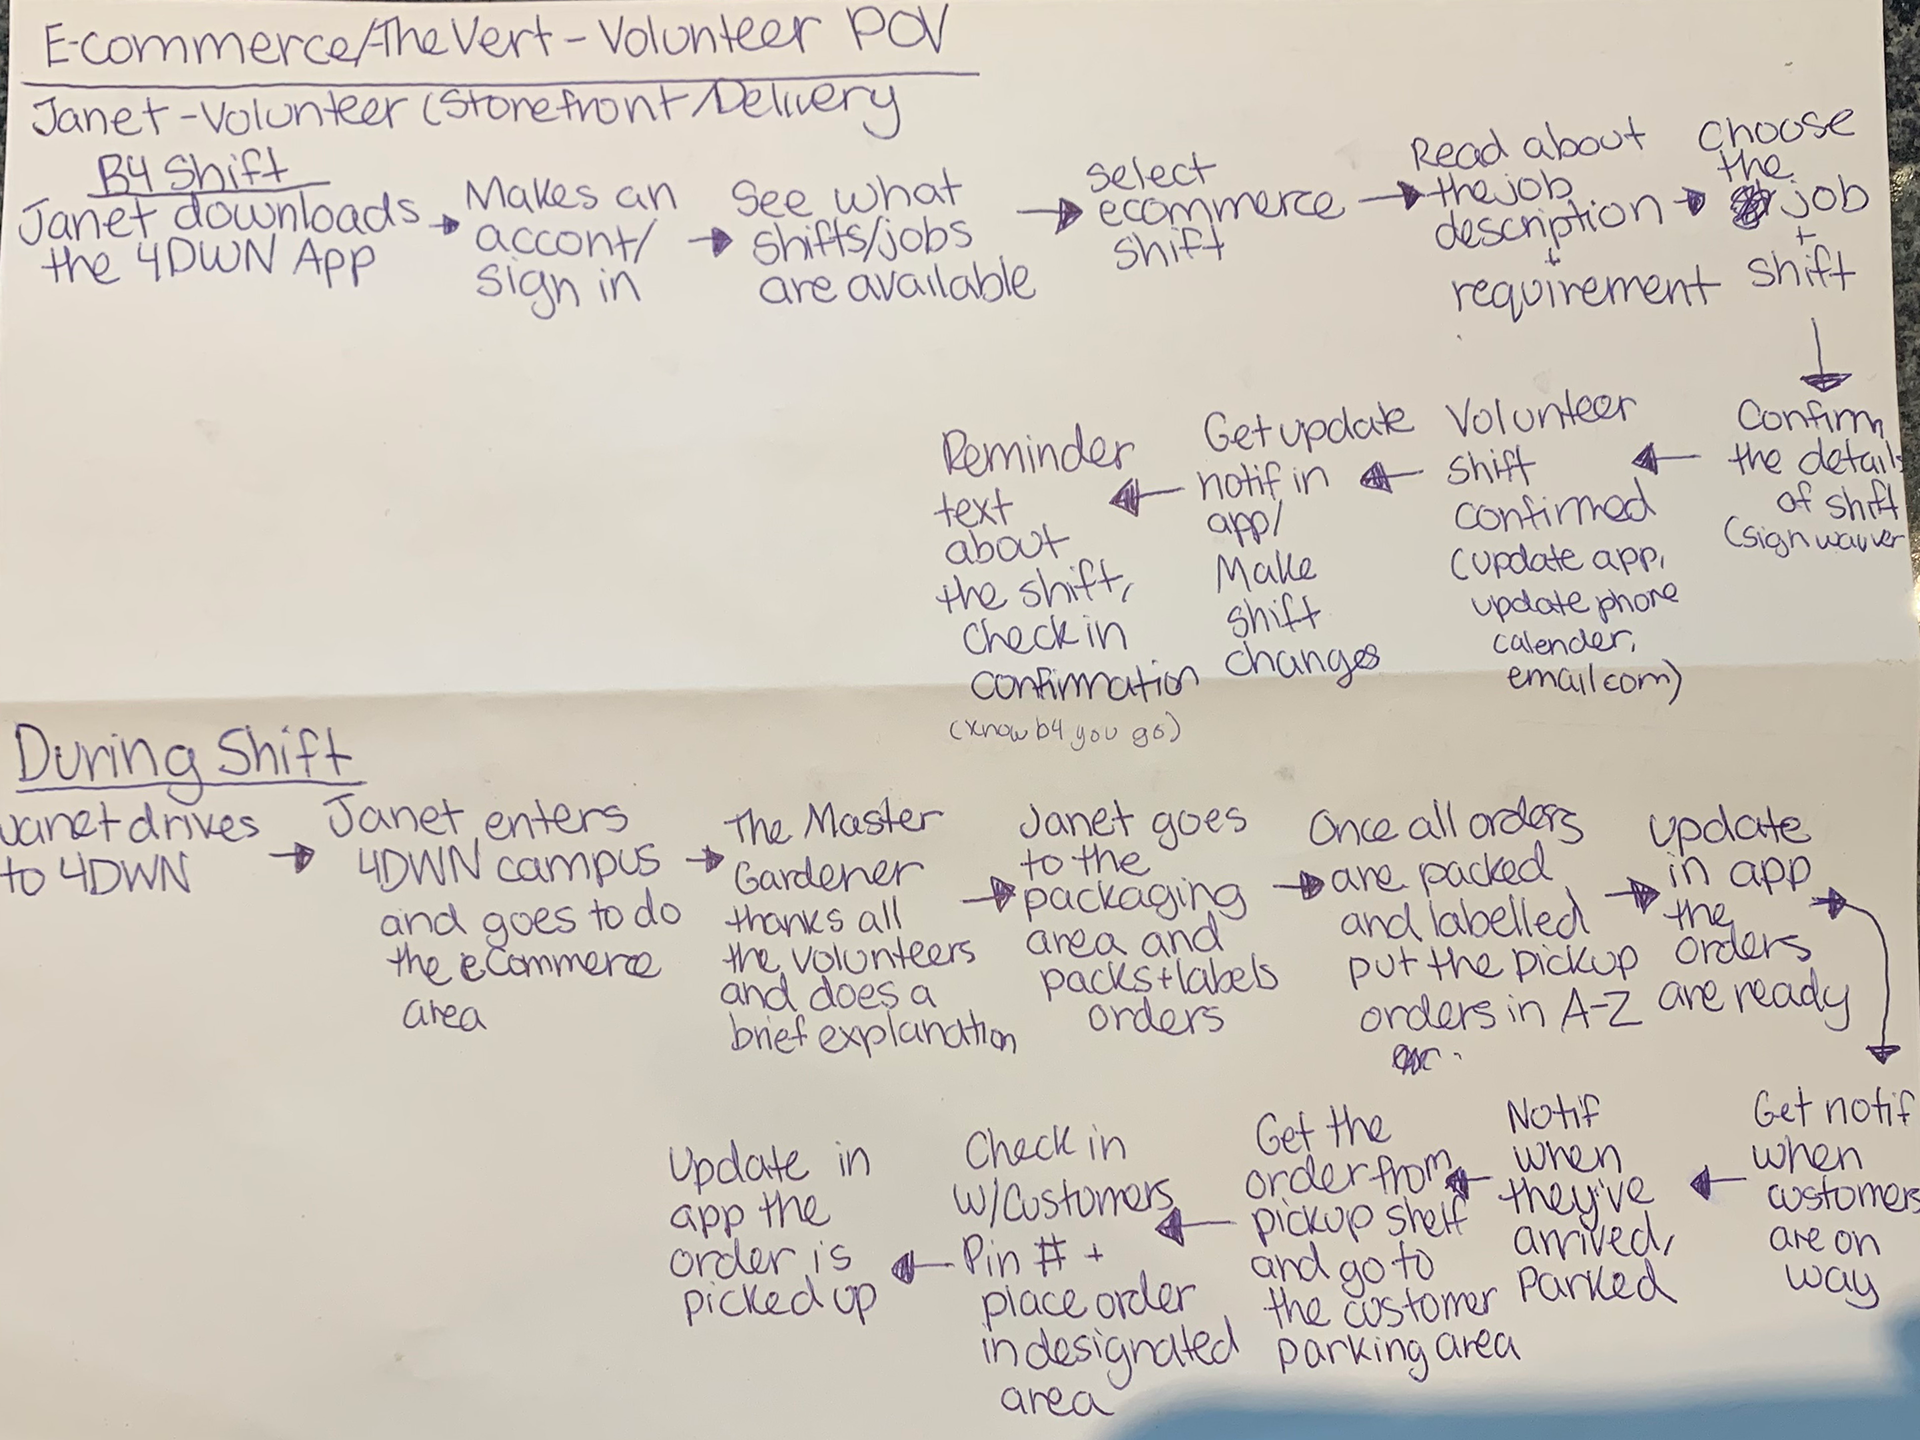 E-commerce/The Vert - Volunteer POV
Janet - Volunteer (Storefront/Delivery
B4 Shift
Janet downloads
the 4DWN App
Makes an
accont/
sign in
See what
shifts/jobs
are available
Select
ecommerce
shift
Read about
the job
description
+
requirement
Choose
the
job
+
shift
Confirm
the details
of shift
(sign waiver
Volunteer
shift
confirmed
(update app,
update phone
calender,
email com)
Get update
notif in
app/
Make
shift
changes
Reminder
text
about
the shift,
check in
confirmation
(know b4 you go)
During Shift
Janet drives
to 4DWN
Janet enters
4DWN campus
and goes to do
the ecommerce
area
The Master
Gardener
thanks all
the volunteers
and does a
brief explanation
Janet goes
to the
packaging
area and
packs + labels
orders
Once all orders
are packed
and labelled
put the pickup
orders in A-Z
Update
in app
the
orders
are ready
Get notif
when
customers
are on
way
Notif
when
they've
arrived,
parked
Get the
order from
pickup shelf
and go to
the customer
parking area
Check in
w/customers
Pin # +
place order
in designated
area
Update in
app the
order is
picked up